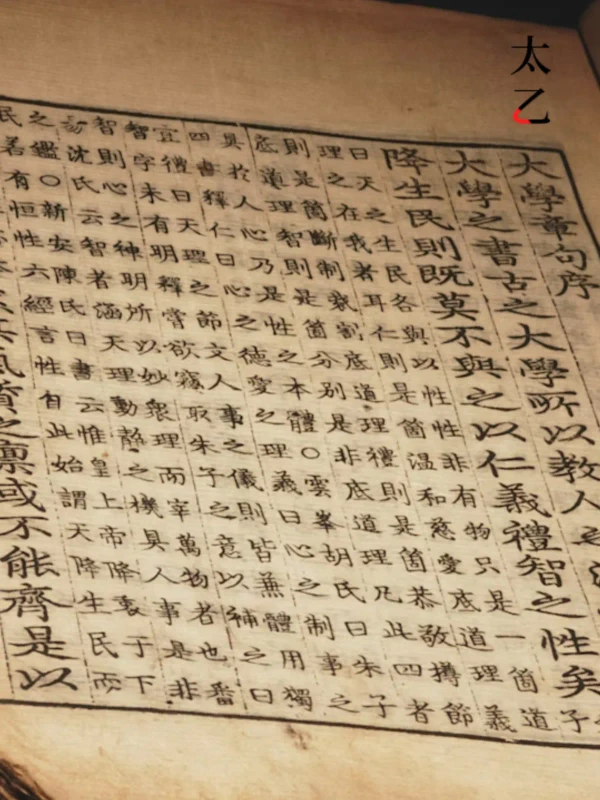 太乙
大學章句序
大學之書古之大學所以教人之
降生民則既莫不與之以仁義禮智之性矣
子
曰天之生民各與以性性非有物只是一箇道
理之在我者耳仁則是箇溫和慈愛底道理義
則是箇斷制裁割底道理禮則是箇恭敬撙節
底道理智則是箇分別是非底道理凡此四者
具於人心乃是性之本體○雲峯胡氏曰朱子
四書釋仁曰心之德愛之理義曰心之制事之
宜禮曰天理之節文人事之儀則皆兼體用獨
智字未有明釋嘗欲竊取朱子之意以補之曰
智則心之神明所以妙衆理而宰萬物者也番
昜沈氏云智者涵天理動靜之機具人事是非
之鑑○新安陳氏曰書云惟皇上帝降衷于下
民若有恒性六經言性自此始謂天降生民而
氣質之稟或不能齊是以